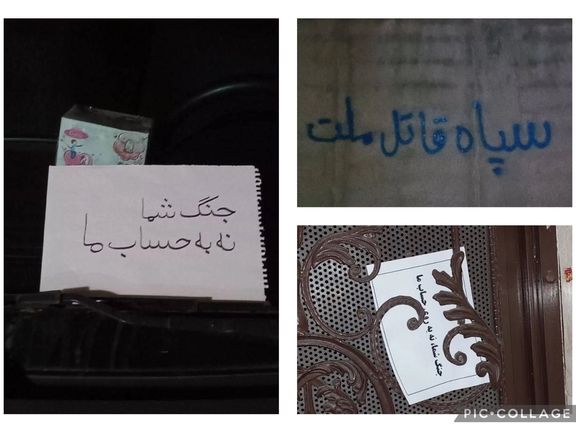 جنگ شما
نه به حساب ما
سپاه قاتل ملت
جنگ شما نه به حساب ما
PIC•COLLAGE